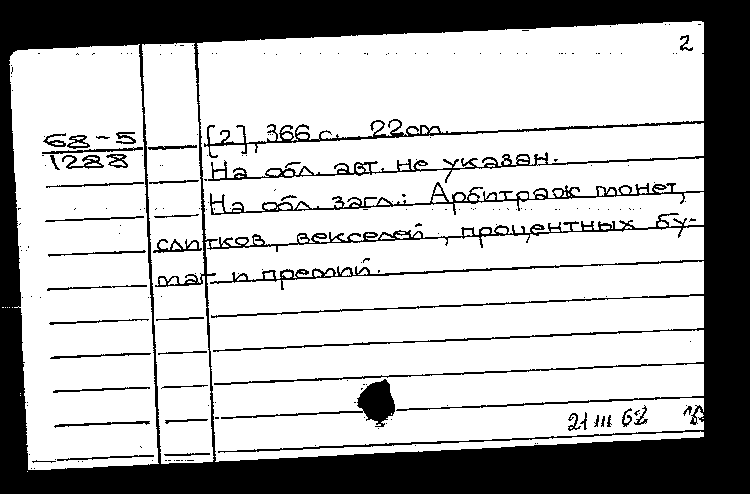 2
68-5
1288
[2], 366 с. 22см.
На обл. авт. не указан.
На обл. загл.: Арбитраж монет,
слитков, векселей, процентных бу-
маг и премий.
21 III 68